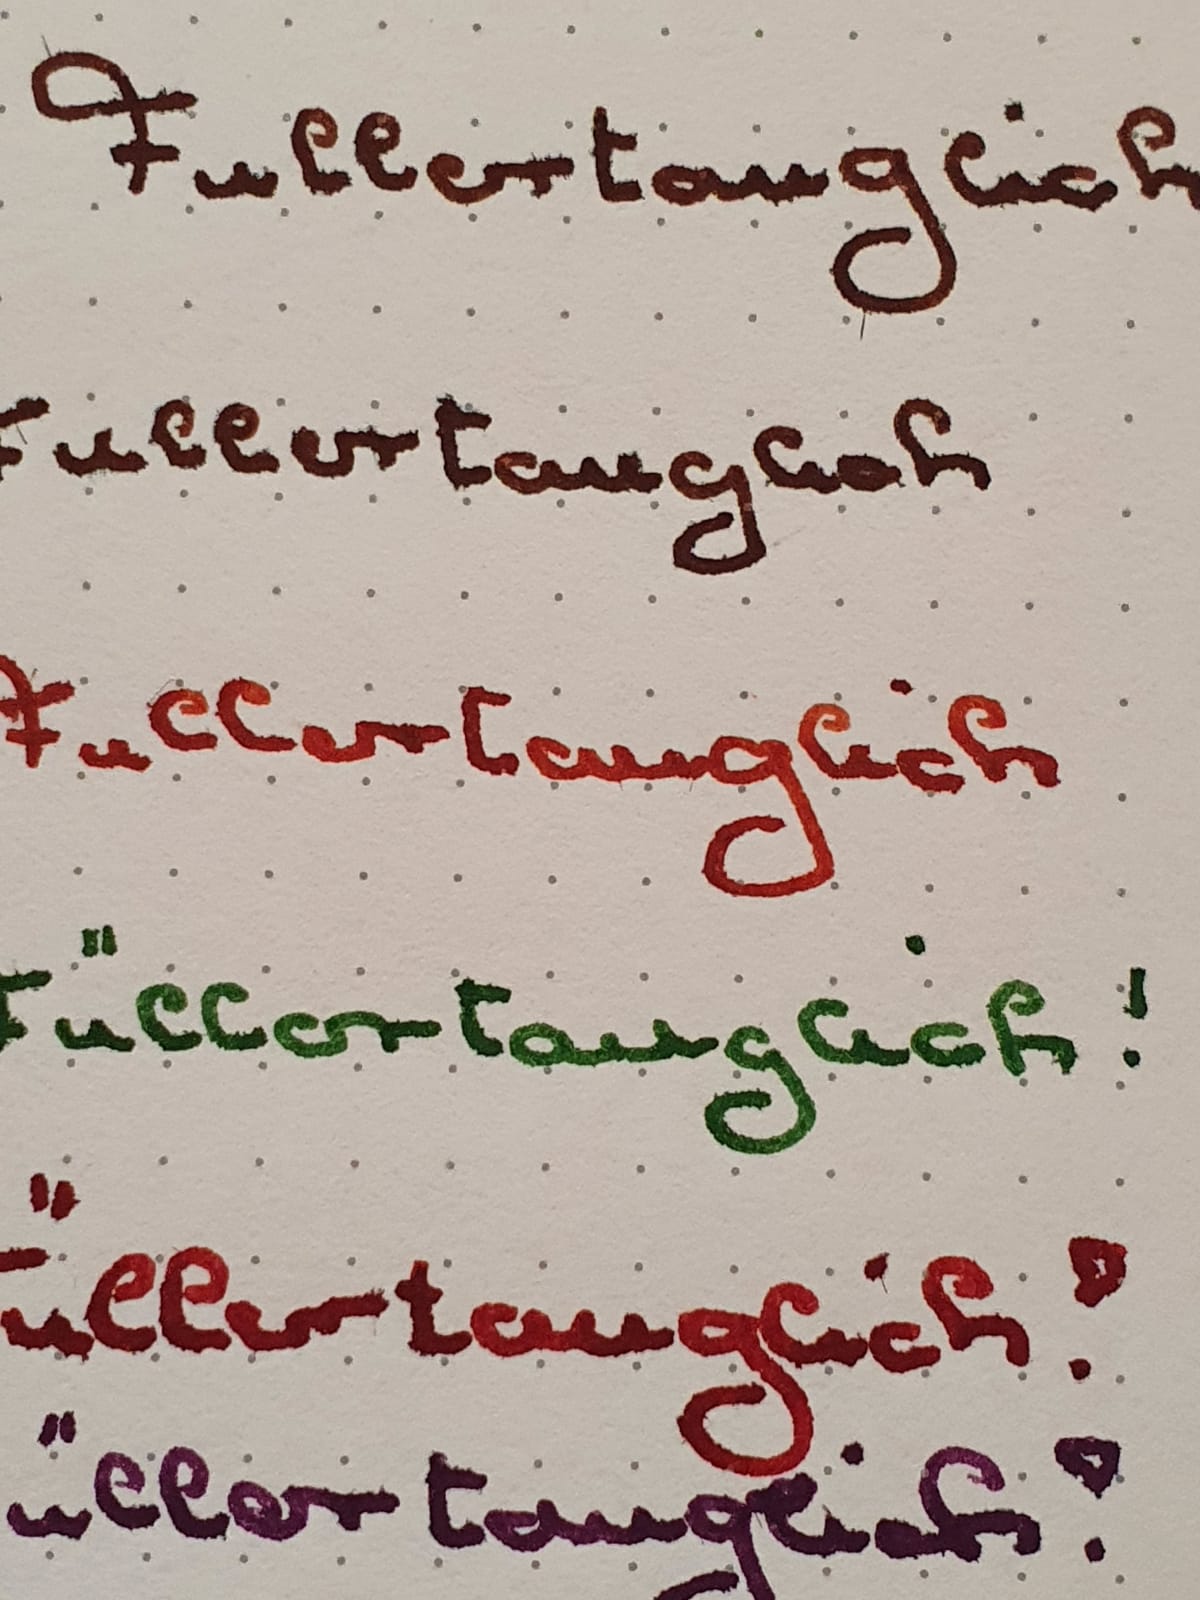 Fullertauglich
Fullertauglich
Fullertauglich
Füllertauglich!
Füllertauglich?
üllertauglich?